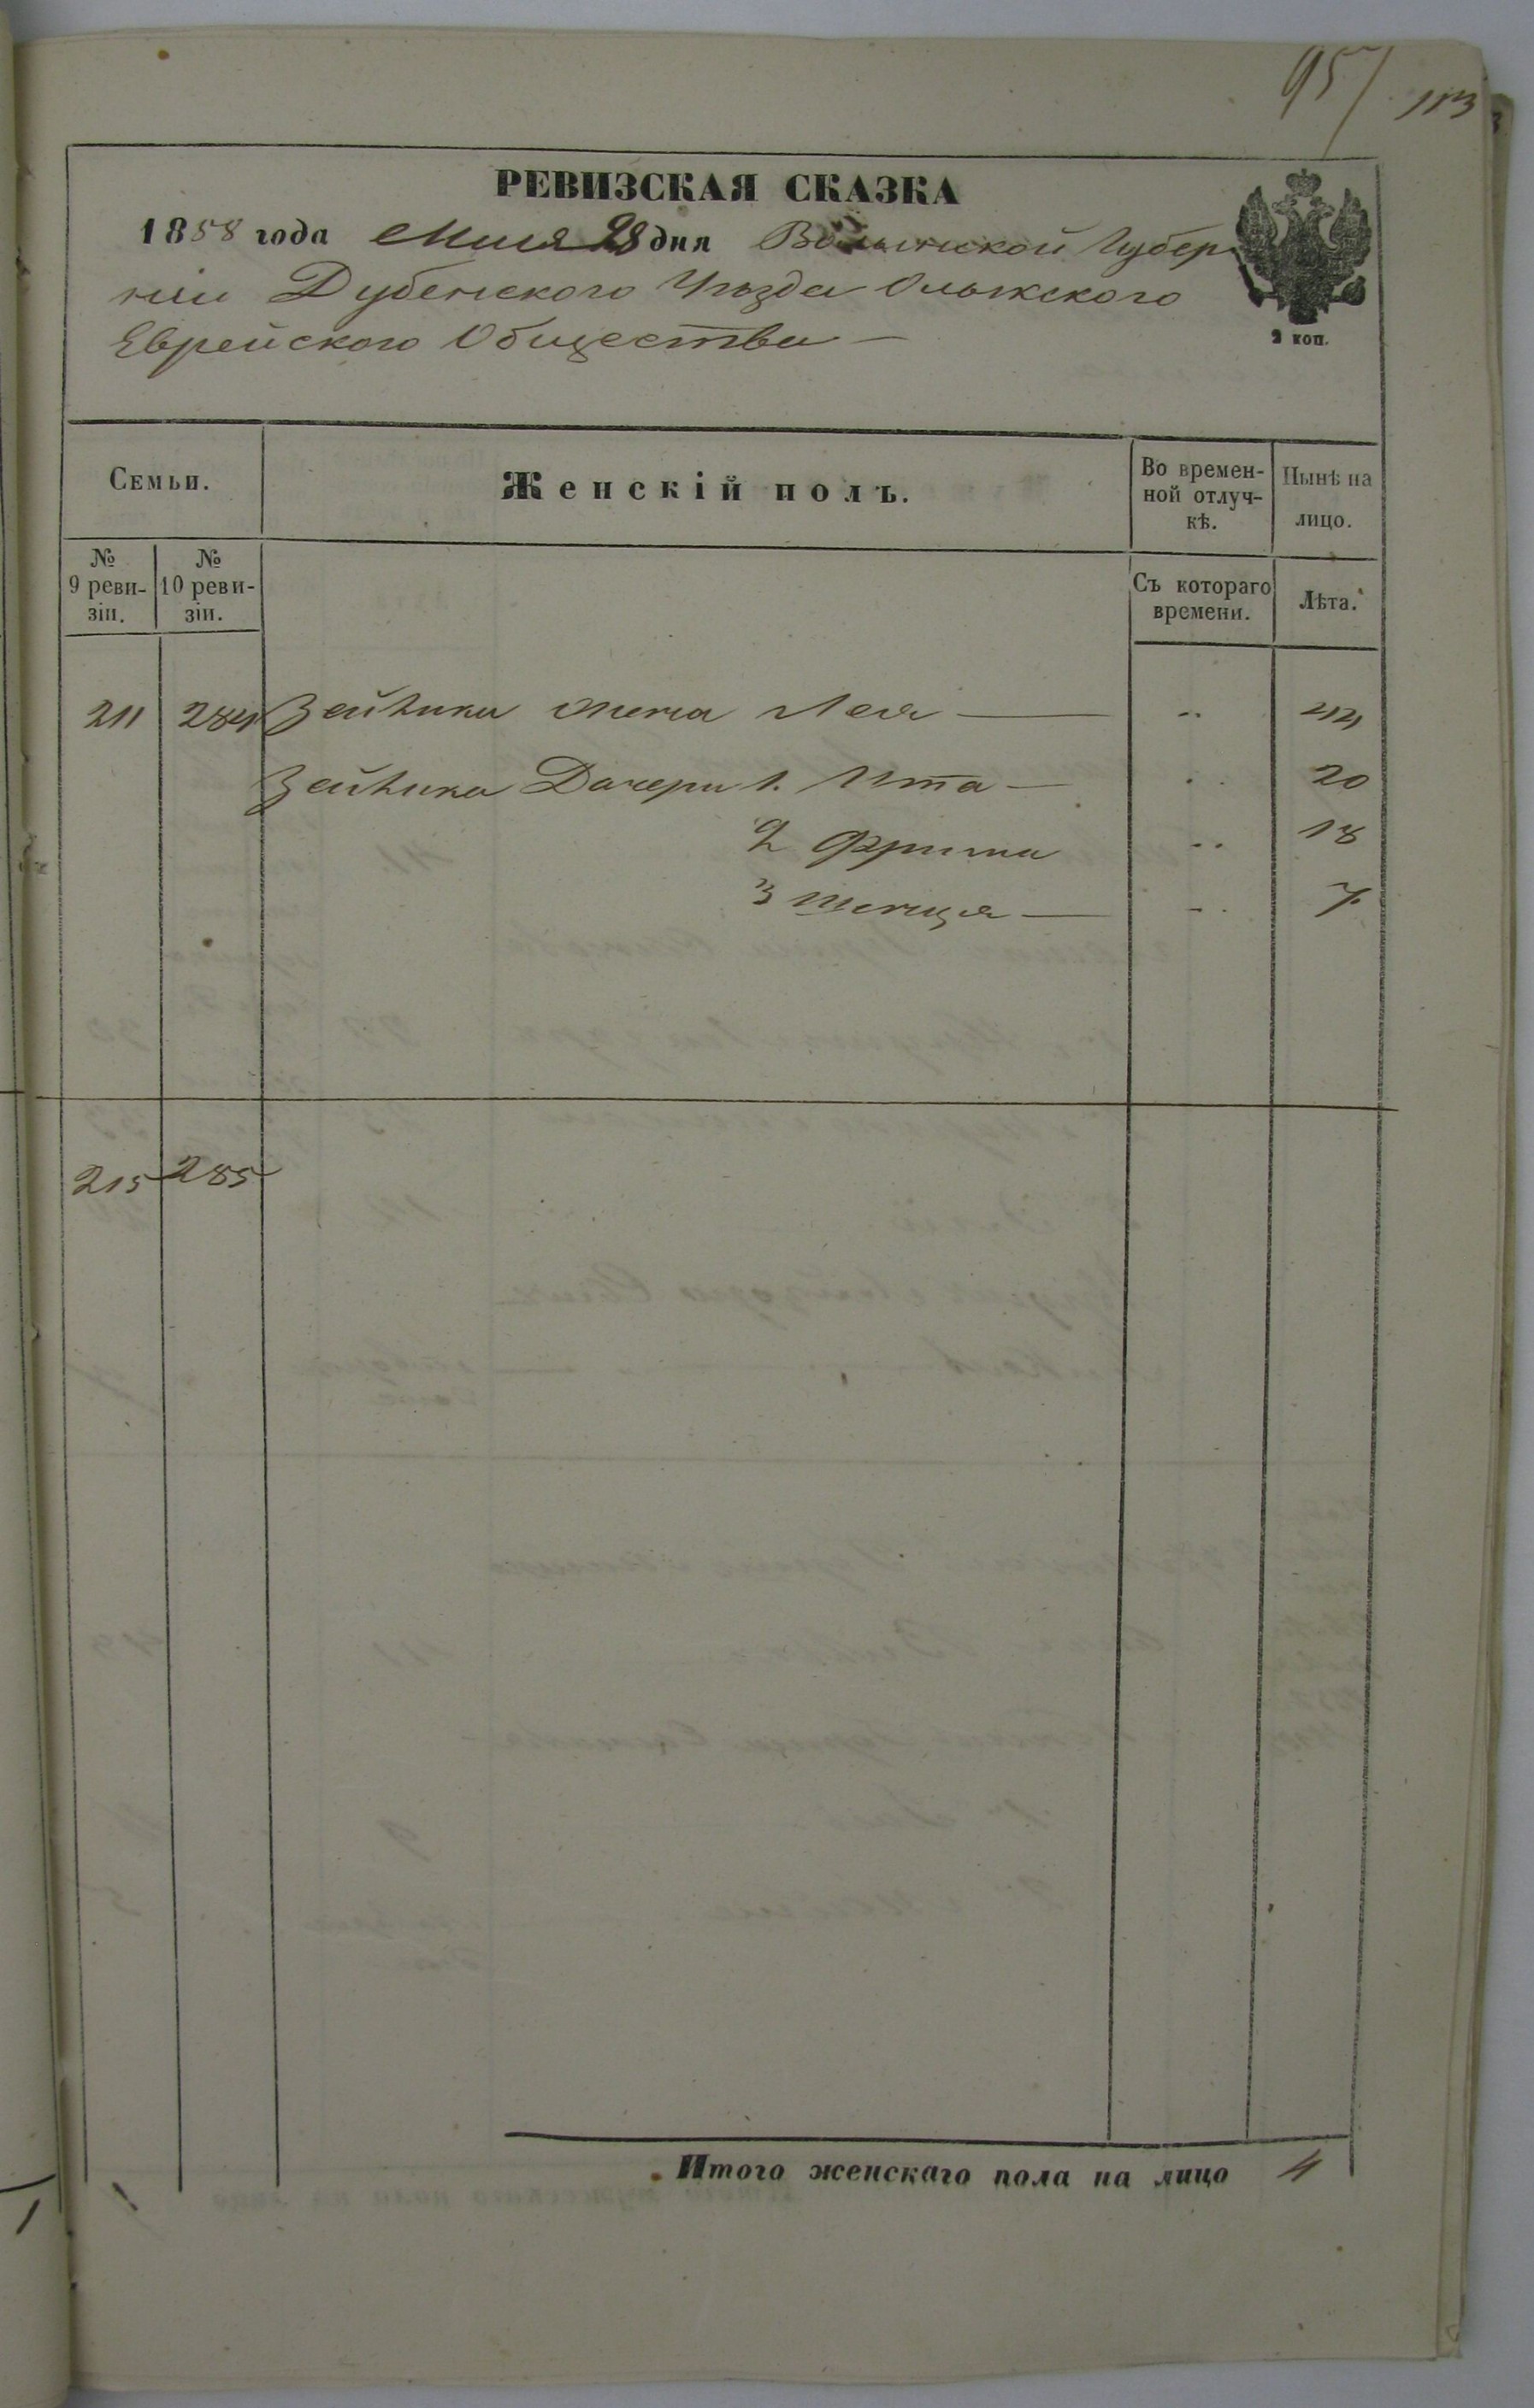 95 113
РЕВИЗСКАЯ СКАЗКА
1858 года Мая 28 дня Волынской Губер
нии Дубенского Уезда Олыкского
Еврейского Общества —
2 коп.
Семьи.
Женскій полъ.
Во времен-
ной отлуч-
кѣ.
Нынѣ на
лицо.
№
9 реви-
зіи.
№
10 реви-
зіи.
Съ котораго
времени.
Лѣта.
211 284 жена Лея — 44
Дочери 1. Ита — 20
2 Фрима 18
3 Шенця — 7
215 285
Итого женскаго пола на лицо 4